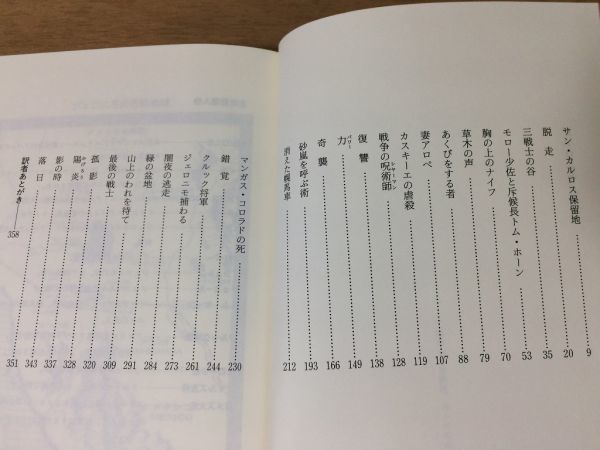 サン・カルロス保留地……9
脱走……20
三戦士の谷……35
モロー少佐と斥候長トム・ホーン……53
胸の上のナイフ……70
草木の声……79
あくびをする者……88
妻アロペ……107
カスキーエの虐殺……119
戦争の呪術師……128
復讐……138
力……149
奇襲……166
砂嵐を呼ぶ術……193
消えた幌馬車……212
マンガス・コロラドの死……230
錯覚……244
クルック将軍……261
ジェロニモ捕わる……273
闇夜の逃走……284
緑の盆地……291
山上のわれを待て……309
最後の戦士……320
孤影……328
陽炎……337
影の時……343
落日……351
訳者あとがき――358